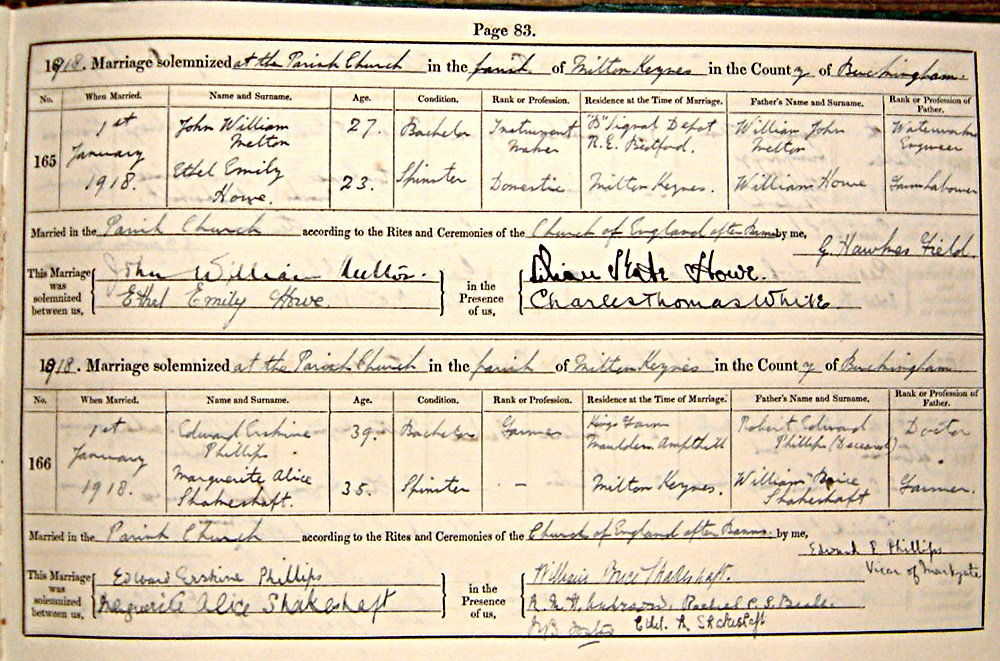 Page 83.
1918. Marriage solemnized at the Parish Church in the parish of Milton Keynes in the County of Buckingham.
No. When Married. Name and Surname. Age. Condition. Rank or Profession. Residence at the Time of Marriage. Father's Name and Surname. Rank or Profession of Father.
165 1st January 1918. John William Melton 27. Bachelor Instrument Maker "B" Signal Depot R.E. Bedford. William John Melton Waterworks Engineer
Ethel Emily Howe. 23. Spinster Domestic Milton Keynes. William Howe Farm labourer
Married in the Parish Church according to the Rites and Ceremonies of the Church of England after Banns by me,
G. Hawkes Field.
This Marriage was solemnized between us, John William Melton. Ethel Emily Howe in the Presence of us, Lilian Howe. Charles Thomas White.
1918. Marriage solemnized at the Parish Church in the parish of Milton Keynes in the County of Buckingham
No. When Married. Name and Surname. Age. Condition. Rank or Profession. Residence at the Time of Marriage. Father's Name and Surname. Rank or Profession of Father.
166 1st January 1918. Edward Erskine Phillips 39. Bachelor Farmer Kings Farm Maulden Ampthill Robert Edward Phillips (Deceased) Doctor
Marguerite Alice Shakeshaft. 35. Spinster - Milton Keynes. William Brice Shakeshaft Farmer.
Married in the Parish Church according to the Rites and Ceremonies of the Church of England after Banns. by me,
Edward P Phillips
Vicar of Markyate
This Marriage was solemnized between us, Edward Erskine Phillips Marguerite Alice Shakeshaft in the Presence of us, William Brice Shakeshaft. Rachel
Ethel R Shakeshaft